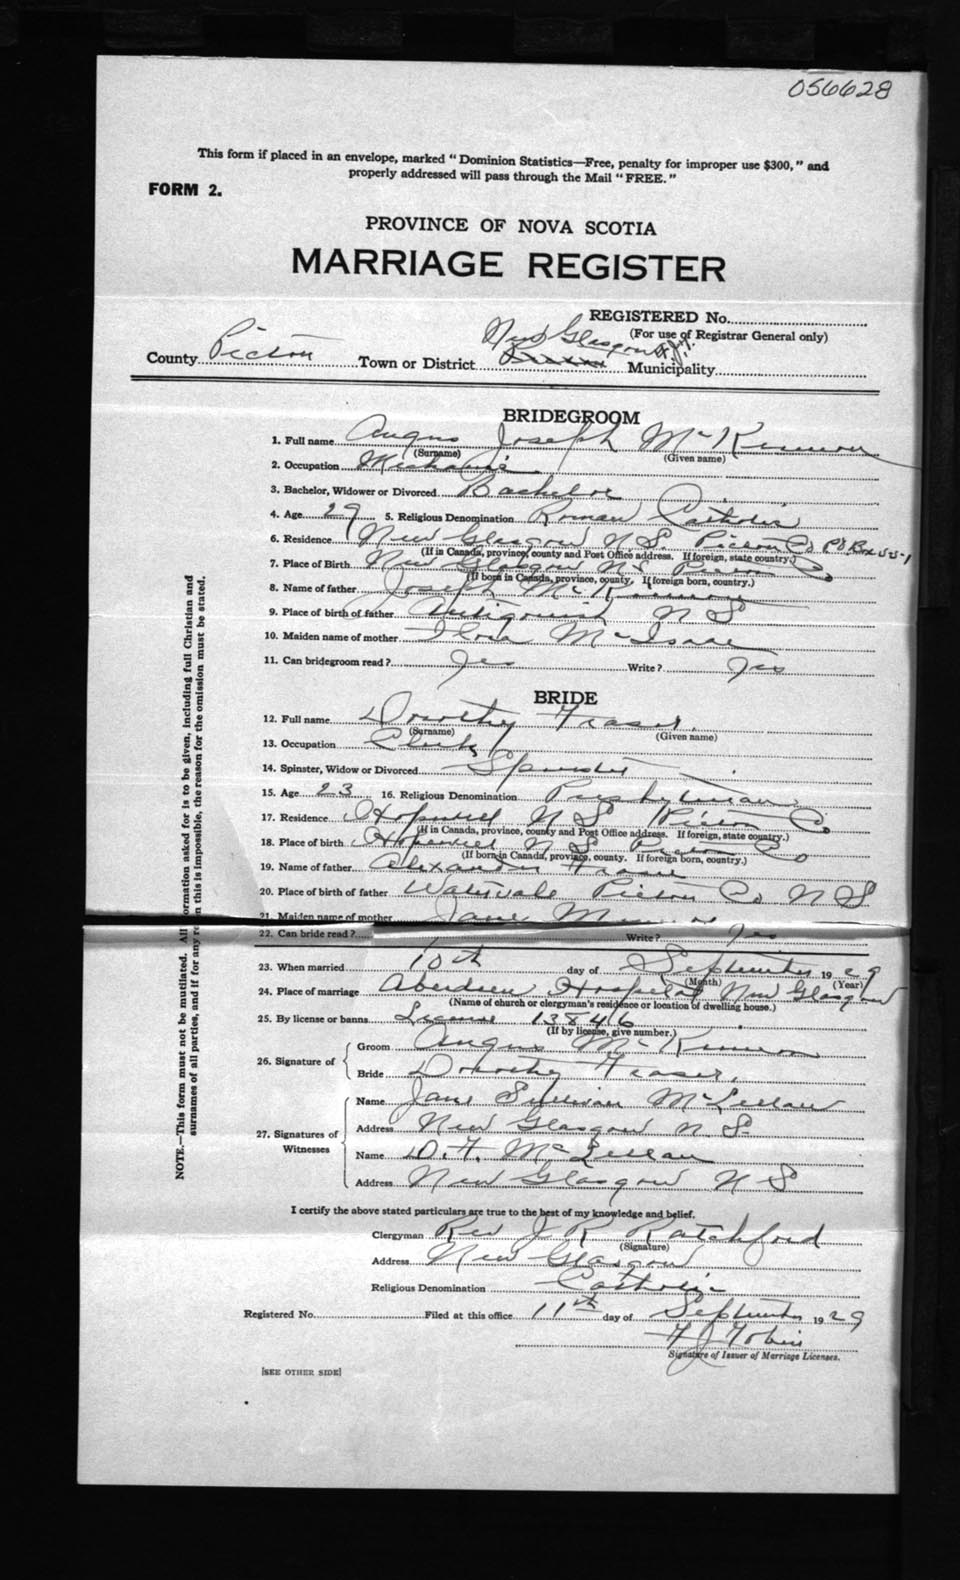 056628
This form if placed in an envelope, marked "Dominion Statistics—Free, penalty for improper use $300," and
properly addressed will pass through the Mail "FREE."
FORM 2.
PROVINCE OF NOVA SCOTIA
MARRIAGE REGISTER
REGISTERED No.
(For use of Registrar General only)
County Pictou Town or District New Glasgow Municipality
BRIDEGROOM
1. Full name Angus Joseph McKinnon
(Surname) (Given name)
2. Occupation Mechanic
3. Bachelor, Widower or Divorced Bachelor
4. Age 29 5. Religious Denomination Roman Catholic
6. Residence New Glasgow N.S. Pictou Co PO Box
(If in Canada, province, county and Post Office address. If foreign, state country.)
7. Place of Birth New Glasgow NS Pictou Co
(If born in Canada, province, county, If foreign born, country.)
8. Name of father Joseph McKinnon
9. Place of birth of father Antigonish N S
10. Maiden name of mother Flora McIsaac
11. Can bridegroom read? Yes Write? Yes
BRIDE
12. Full name Dorothy Fraser.
(Surname) (Given name)
13. Occupation Clerk
14. Spinster, Widow or Divorced Spinster
15. Age 23 16. Religious Denomination Presbyterian
17. Residence Hopewell N S Pictou Co
(If in Canada, province, county and Post Office address. If foreign, state country.)
18. Place of birth Hopewell N S Pictou Co
(If born in Canada, province, county. If foreign born, country.)
19. Name of father Alexander Fraser
20. Place of birth of father Watervale Pictou Co N S
21. Maiden name of mother Jane
22. Can bride read? Write? Yes
23. When married 10th day of September 1929
(Month) (Year)
24. Place of marriage Aberdeen Hospital New Glasgow
(Name of church or clergyman's residence or location of dwelling house.)
25. By license or banns License 13846
(If by license, give number.)
26. Signature of Groom Angus McKinnon
Bride Dorothy Fraser.
27. Signatures of Witnesses Name Jane Sullivan McLellan
Address New Glasgow N.S.
Name D. F. McLellan
Address New Glasgow N S
I certify the above stated particulars are true to the best of my knowledge and belief.
Clergyman Rev J R Ratchford
(Signature)
Address New Glasgow
Religious Denomination Catholic
Registered No. Filed at this office 11th day of September 1929
F J Tobin
Signature of Issuer of Marriage Licenses.
[SEE OTHER SIDE]
NOTE.—This form must not be mutilated. All information asked for is to be given, including full Christian and
surnames of all parties, and if for any reason this is impossible, the reason for the omission must be stated.